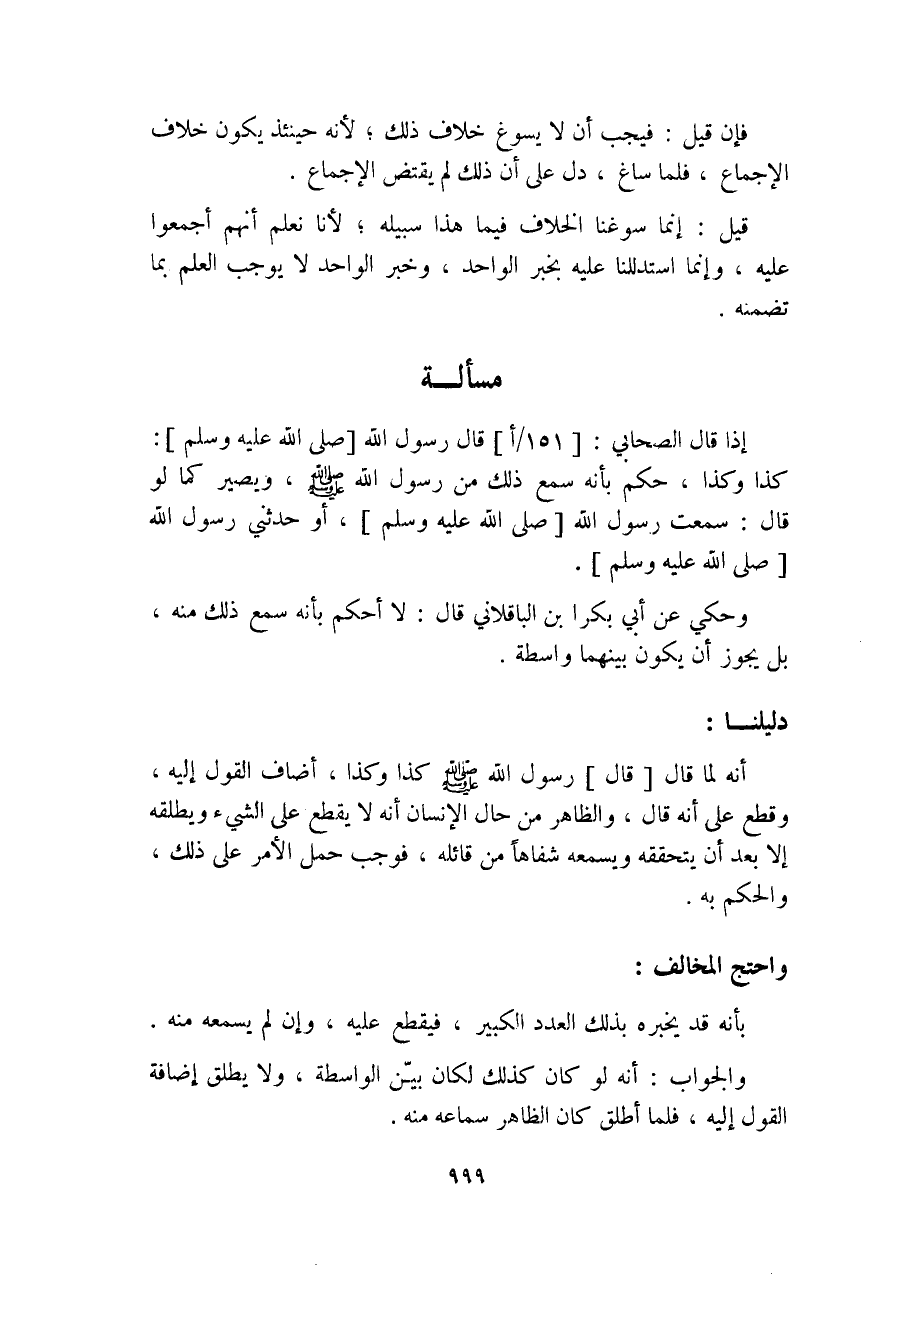 فإن قيل : فيجب أن لا يسوغ خلاف ذلك ؛ لأنه حينئذ يكون خلاف
الإجماع ، فلما ساغ ، دل على أن ذلك لم يقتض الإجماع .
قيل : إنما سوغنا الخلاف فيما هذا سبيله ؛ لأنا نعلم أنهم أجمعوا
عليه ، وإنما استدللنا عليه بخبر الواحد ، وخبر الواحد لا يوجب العلم بما
تضمنه .
مسألـــة
إذا قال الصحابي : [ ١٥١/أ ] قال رسول الله [صلى الله عليه وسلم ]:
كذا وكذا ، حكم بأنه سمع ذلك من رسول الله ﷺ ، ويصير كما لو
قال : سمعت رسول الله [ صلى الله عليه وسلم ] ، أو حدثني رسول الله
[ صلى الله عليه وسلم ] .
وحكي عن أبي بكرا بن الباقلاني قال : لا أحكم بأنه سمع ذلك منه ،
بل يجوز أن يكون بينهما واسطة .
دليلنـــا :
أنه لما قال [ قال ] رسول الله ﷺ كذا وكذا ، أضاف القول إليه ،
وقطع على أنه قال ، والظاهر من حال الإنسان أنه لا يقطع على الشيء ويطلقه
إلا بعد أن يتحققه ويسمعه شفاهاً من قائله ، فوجب حمل الأمر على ذلك ،
والحكم به .
واحتج المخالف :
بأنه قد يخبره بذلك العدد الكبير ، فيقطع عليه ، وإن لم يسمعه منه .
والجواب : أنه لو كان كذلك لكان بيّن الواسطة ، ولا يطلق إضافة
القول إليه ، فلما أطلق كان الظاهر سماعه منه .
٩٩٩